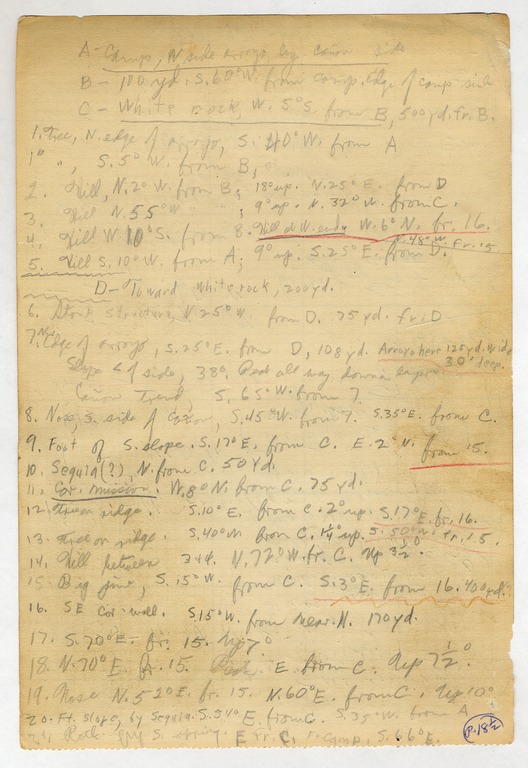 A - Camp, W side arroyo, by cañon side
B - 100 yd. S. 60° W. from camp. Edge of camp side
C - White rock, W. 5° S. from B, 500 yd. fr. B.
1. Tree, N. edge of arroyo, S. 40° W. from A
1" " , S. 5° W. from B,
2. Hill, N. 2° W. from B; 18° up. N. 25° E. from D
3. Hill N. 55° W " " ; 9° up. N. 32° W. from C.
4. Hill W 10° S. from 8. W. 6° N. fr. 16.
S. 48° W. Fr. 15
5. Hill S. 10° W. from A; 9° up. S. 25° E. from D.
D - Toward white rock, 200 yd.
6. Stone structure, N. 25° W. from D. 75 yd. fr. D
7. Edge of arroyo, S. 25° E. from D, 108 yd. Arroyo here 125 yd. wide
30' deep.
Slope of side, 38°. Rock all way down
Cañon Trend, S. 65° W. from 7.
8. Nose, S. side of Cañon, S. 45° W. from 7. S. 35° E. from C.
9. Foot of S. slope. S. 17° E. from C. E. 2° N. from 15.
10. Sequia (?), N. from C. 50 yd.
11. Cor. mission. W. 8° N. from C. 75 yd.
12. Tree on ridge. S. 10° E. from C. 2° up. S. 17° E. fr. 16.
13. Tree on ridge. S. 40° W from C. 1¼° up. S. 50° W. fr. 15.
14. Hill between 3 + 4. N. 72° W. fr. C. Up 3½°.
15. Big pine, S. 15° W. from C. S. 3° E. from 16. 400 yd.?
16. SE Cor. wall. S. 15° W. from near N. 170 yd.
17. S. 70° E. fr. 15. Up 7°
18. N. 70° E. fr. 15. E. from C. Up 7½°.
19. Nose N. 52° E. fr. 15. N. 60° E. from C. Up 10°
20. Ft. Slope, by Sequia. S. 54° E. from C. S. 35° W. from A
21. Rock S. spring. E fr. C, fr camp, S. 66° E.
P. 18½